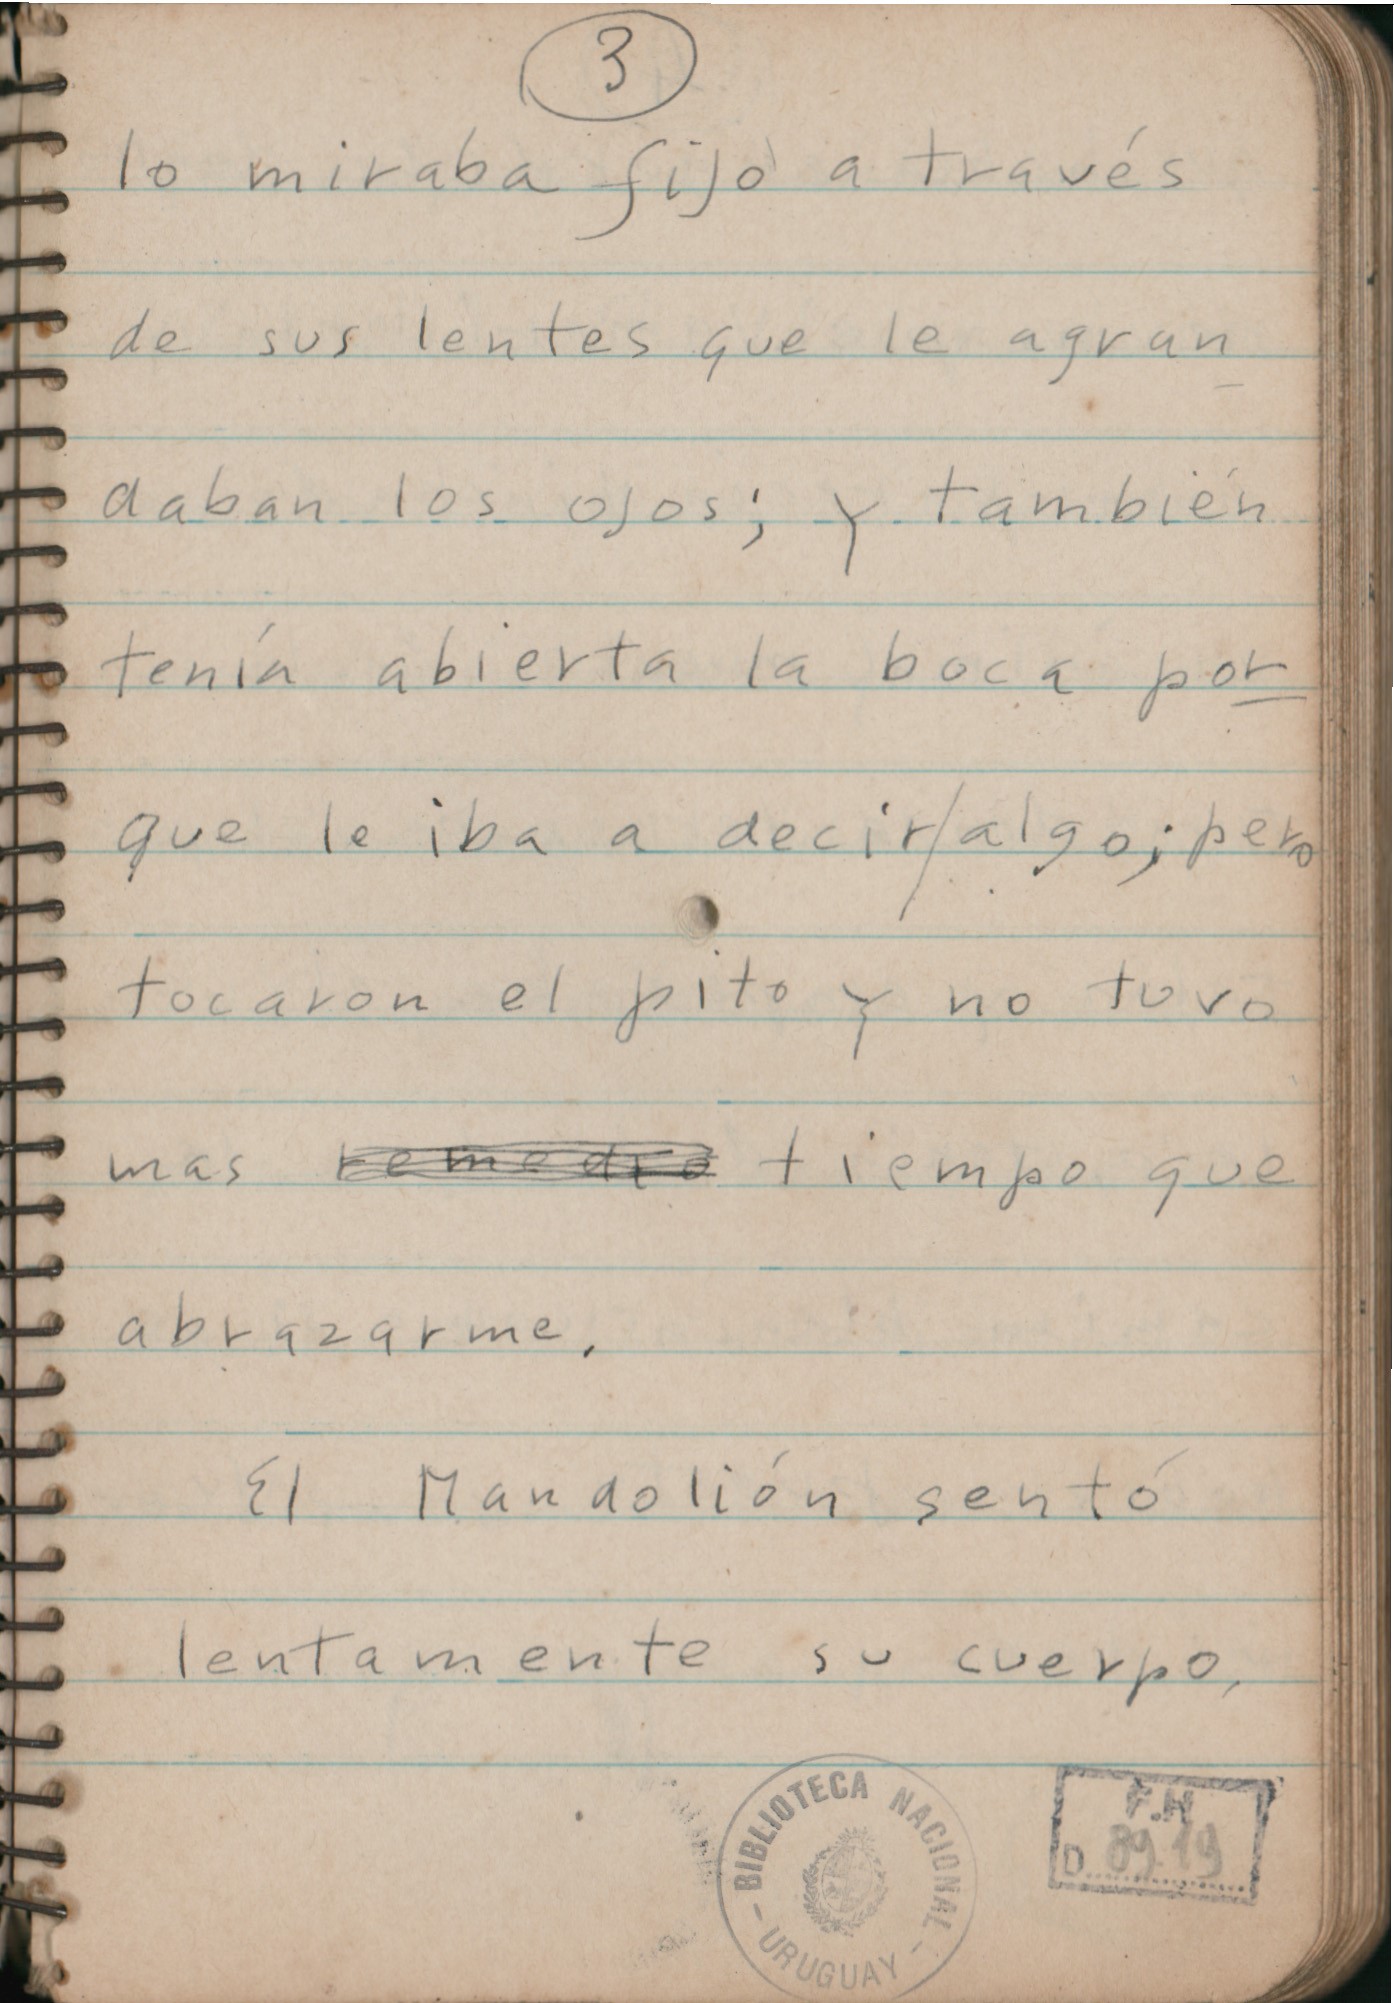 3
lo miraba fijo a través
de sus lentes que le agran
daban los ojos; y también
tenía abierta la boca por
que le iba a decir/algo; pero
tocaron el pito y no tuvo
mas remedio tiempo que
abrazarme.
El Mandolión sentó
lentamente su cuerpo,
BIBLIOTECA NACIONAL
- URUGUAY -
F.H
D 8919